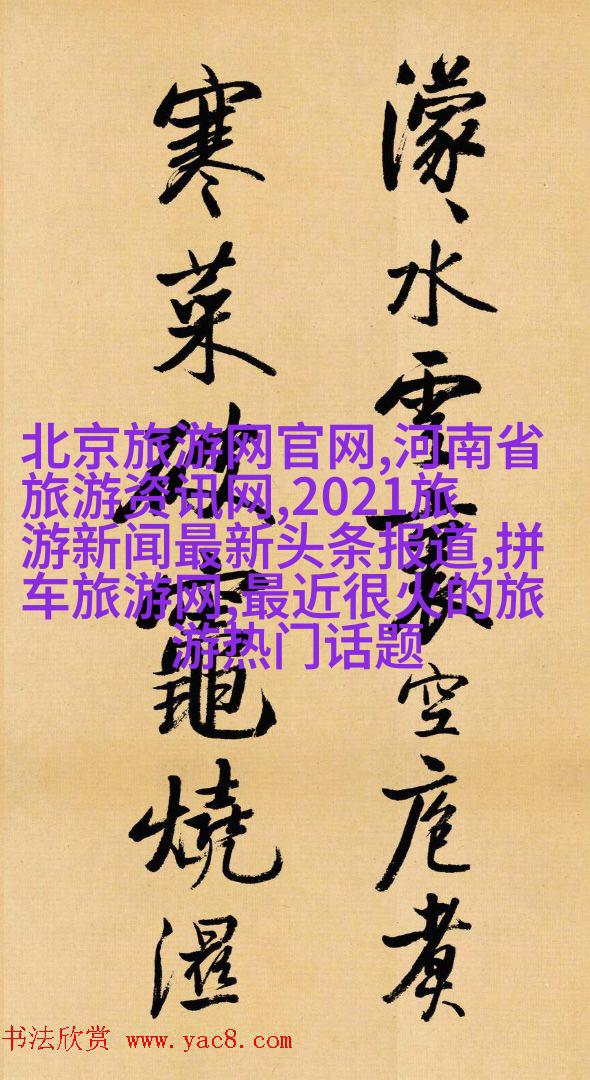 濛々水雲裏空庖煮
寒菜破竈燒濕
北京旅游网官网,河南省
旅游资讯网,2021旅
游新闻最新头条报道,拼
车旅游网,最近很火的旅
游热门话题
书法欣赏 www.yac8.com